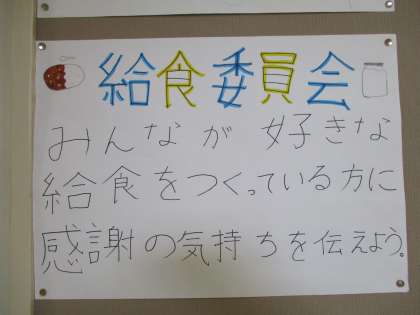 給食委員会
みんなが好きな
給食をつくっている方に
感謝の気持ちを伝えよう。